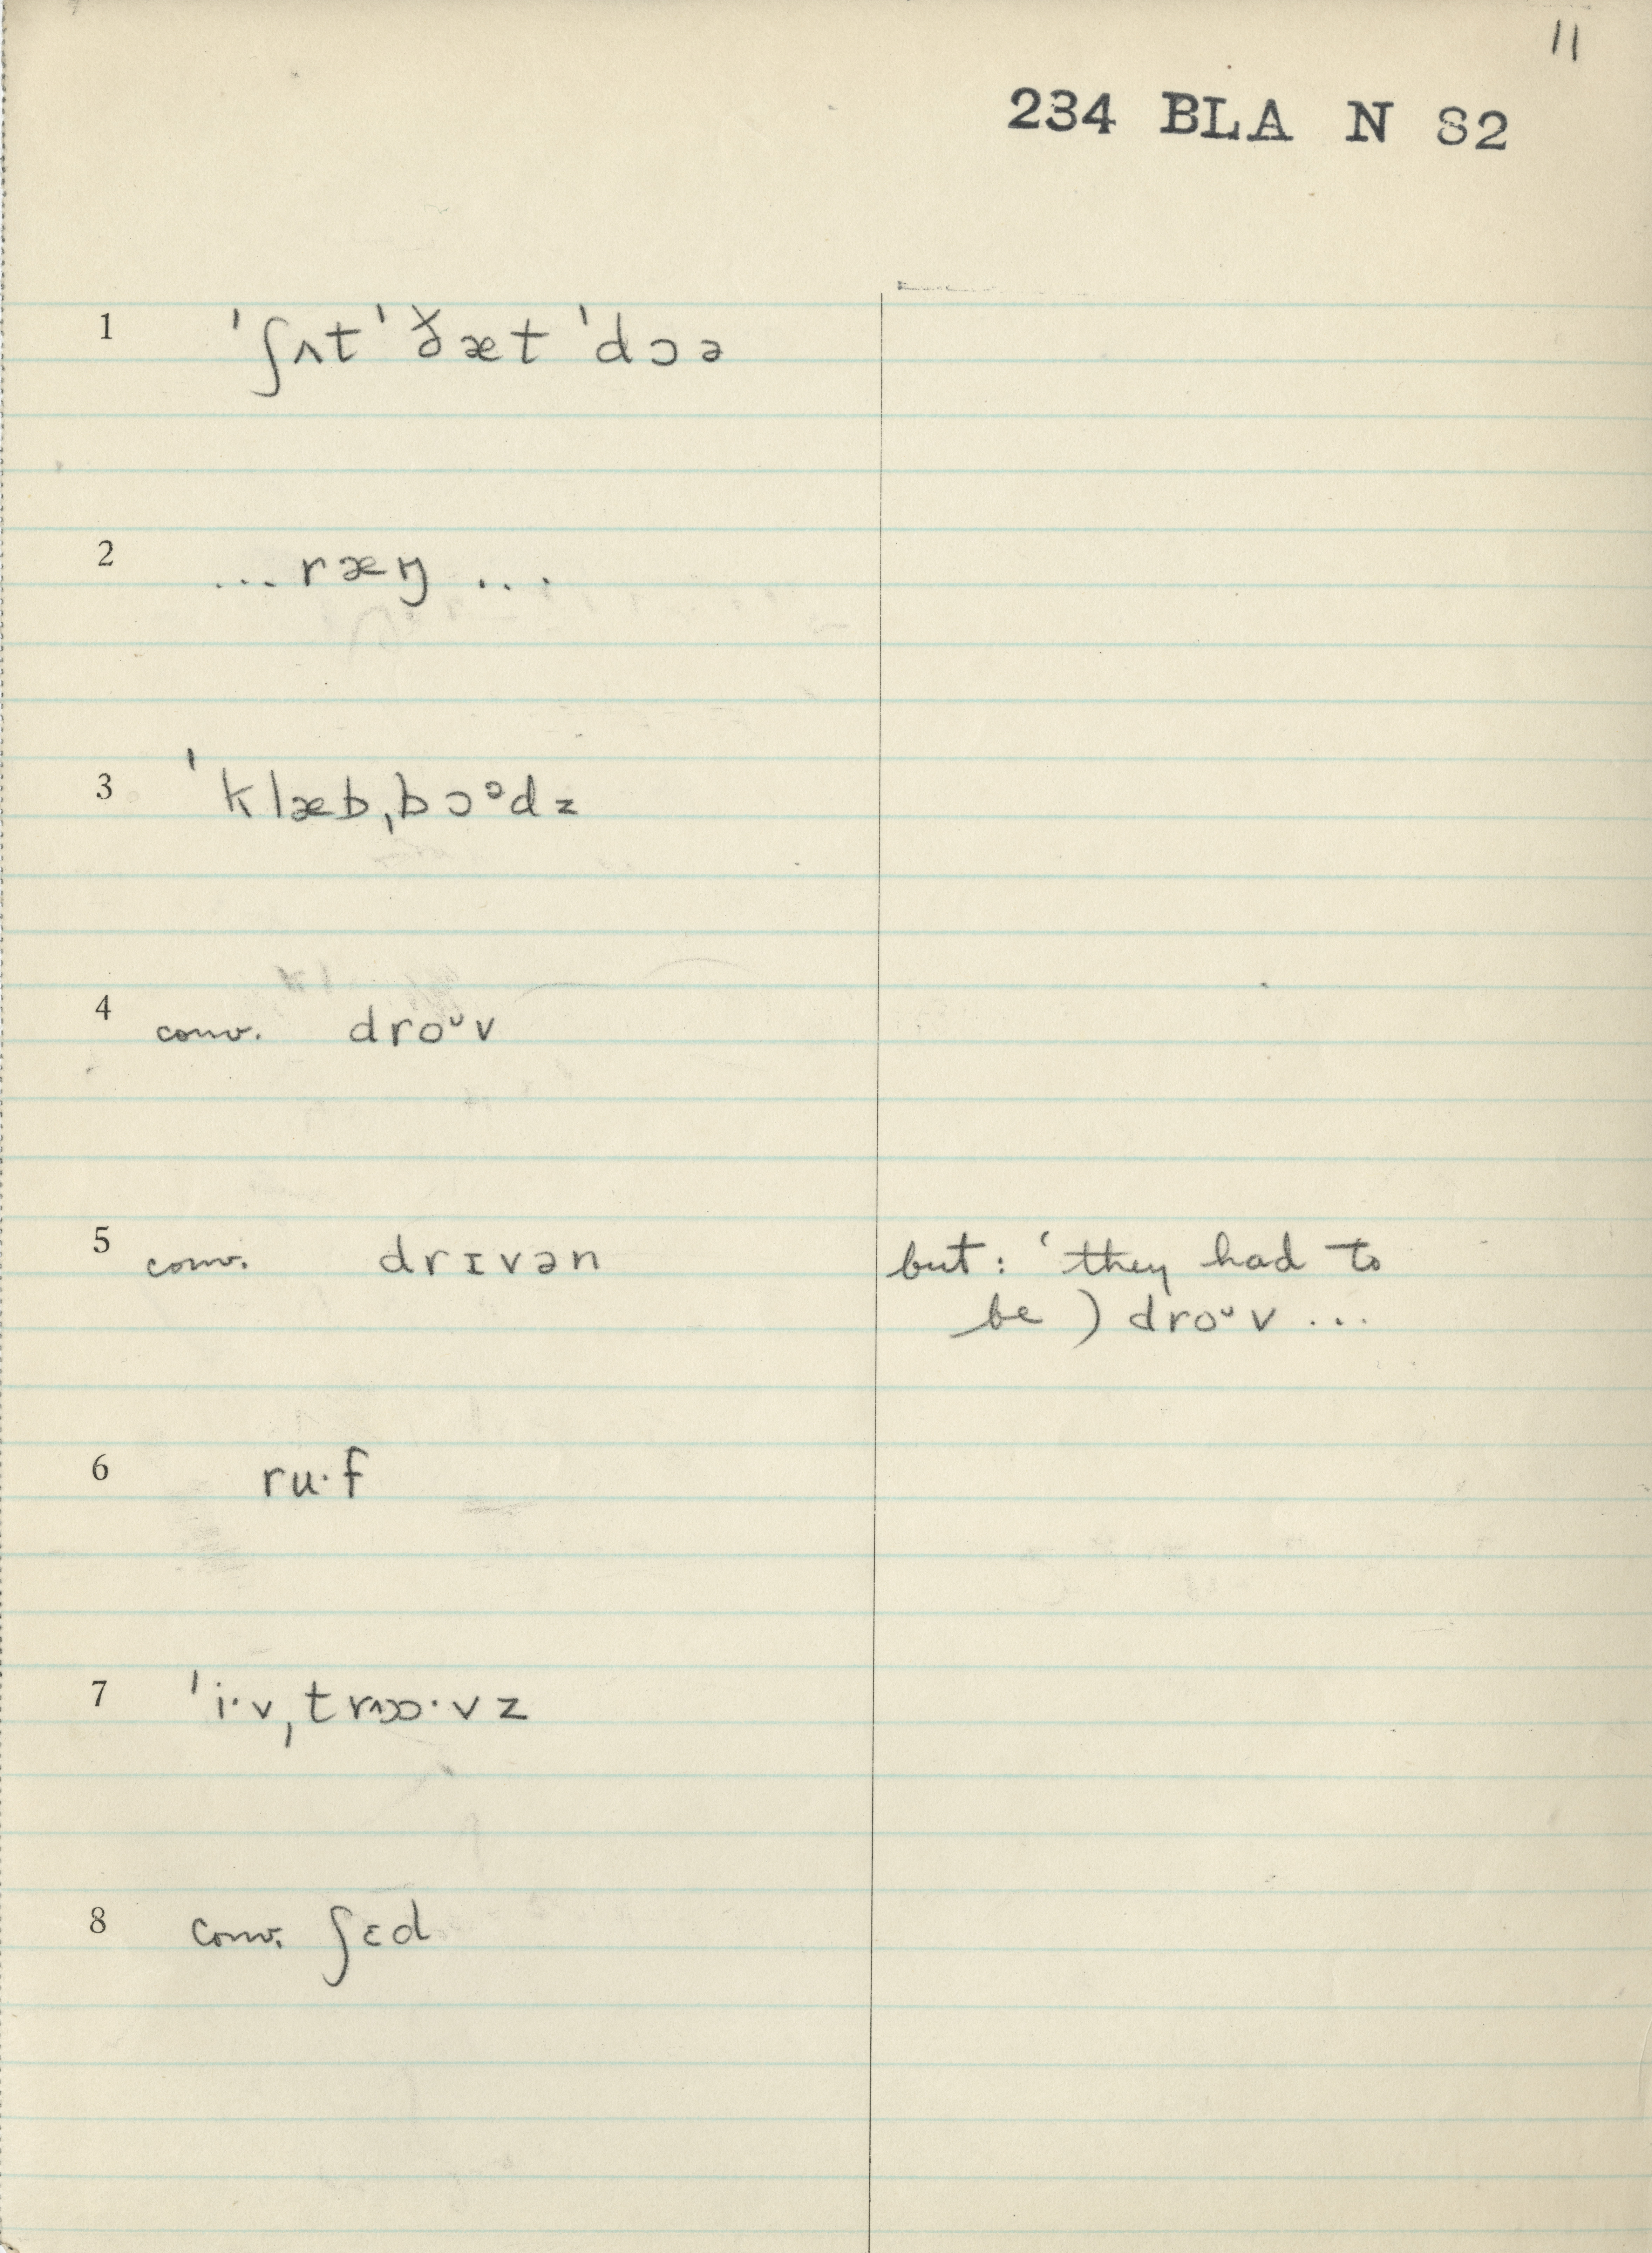 11
234 BLA N 82
1 ˈʃʌt ˈðæt ˈdɔə
2 ... ræŋ ...
3 ˈklæbˌbɔᵊdz
4 conv. droᶷv
5 conv. drɪvən but: ‘they had to
be ) droᶷv ...
6 ru·f
7 ˈi·vˌtrɒ·vz
8 conv. ʃɛd